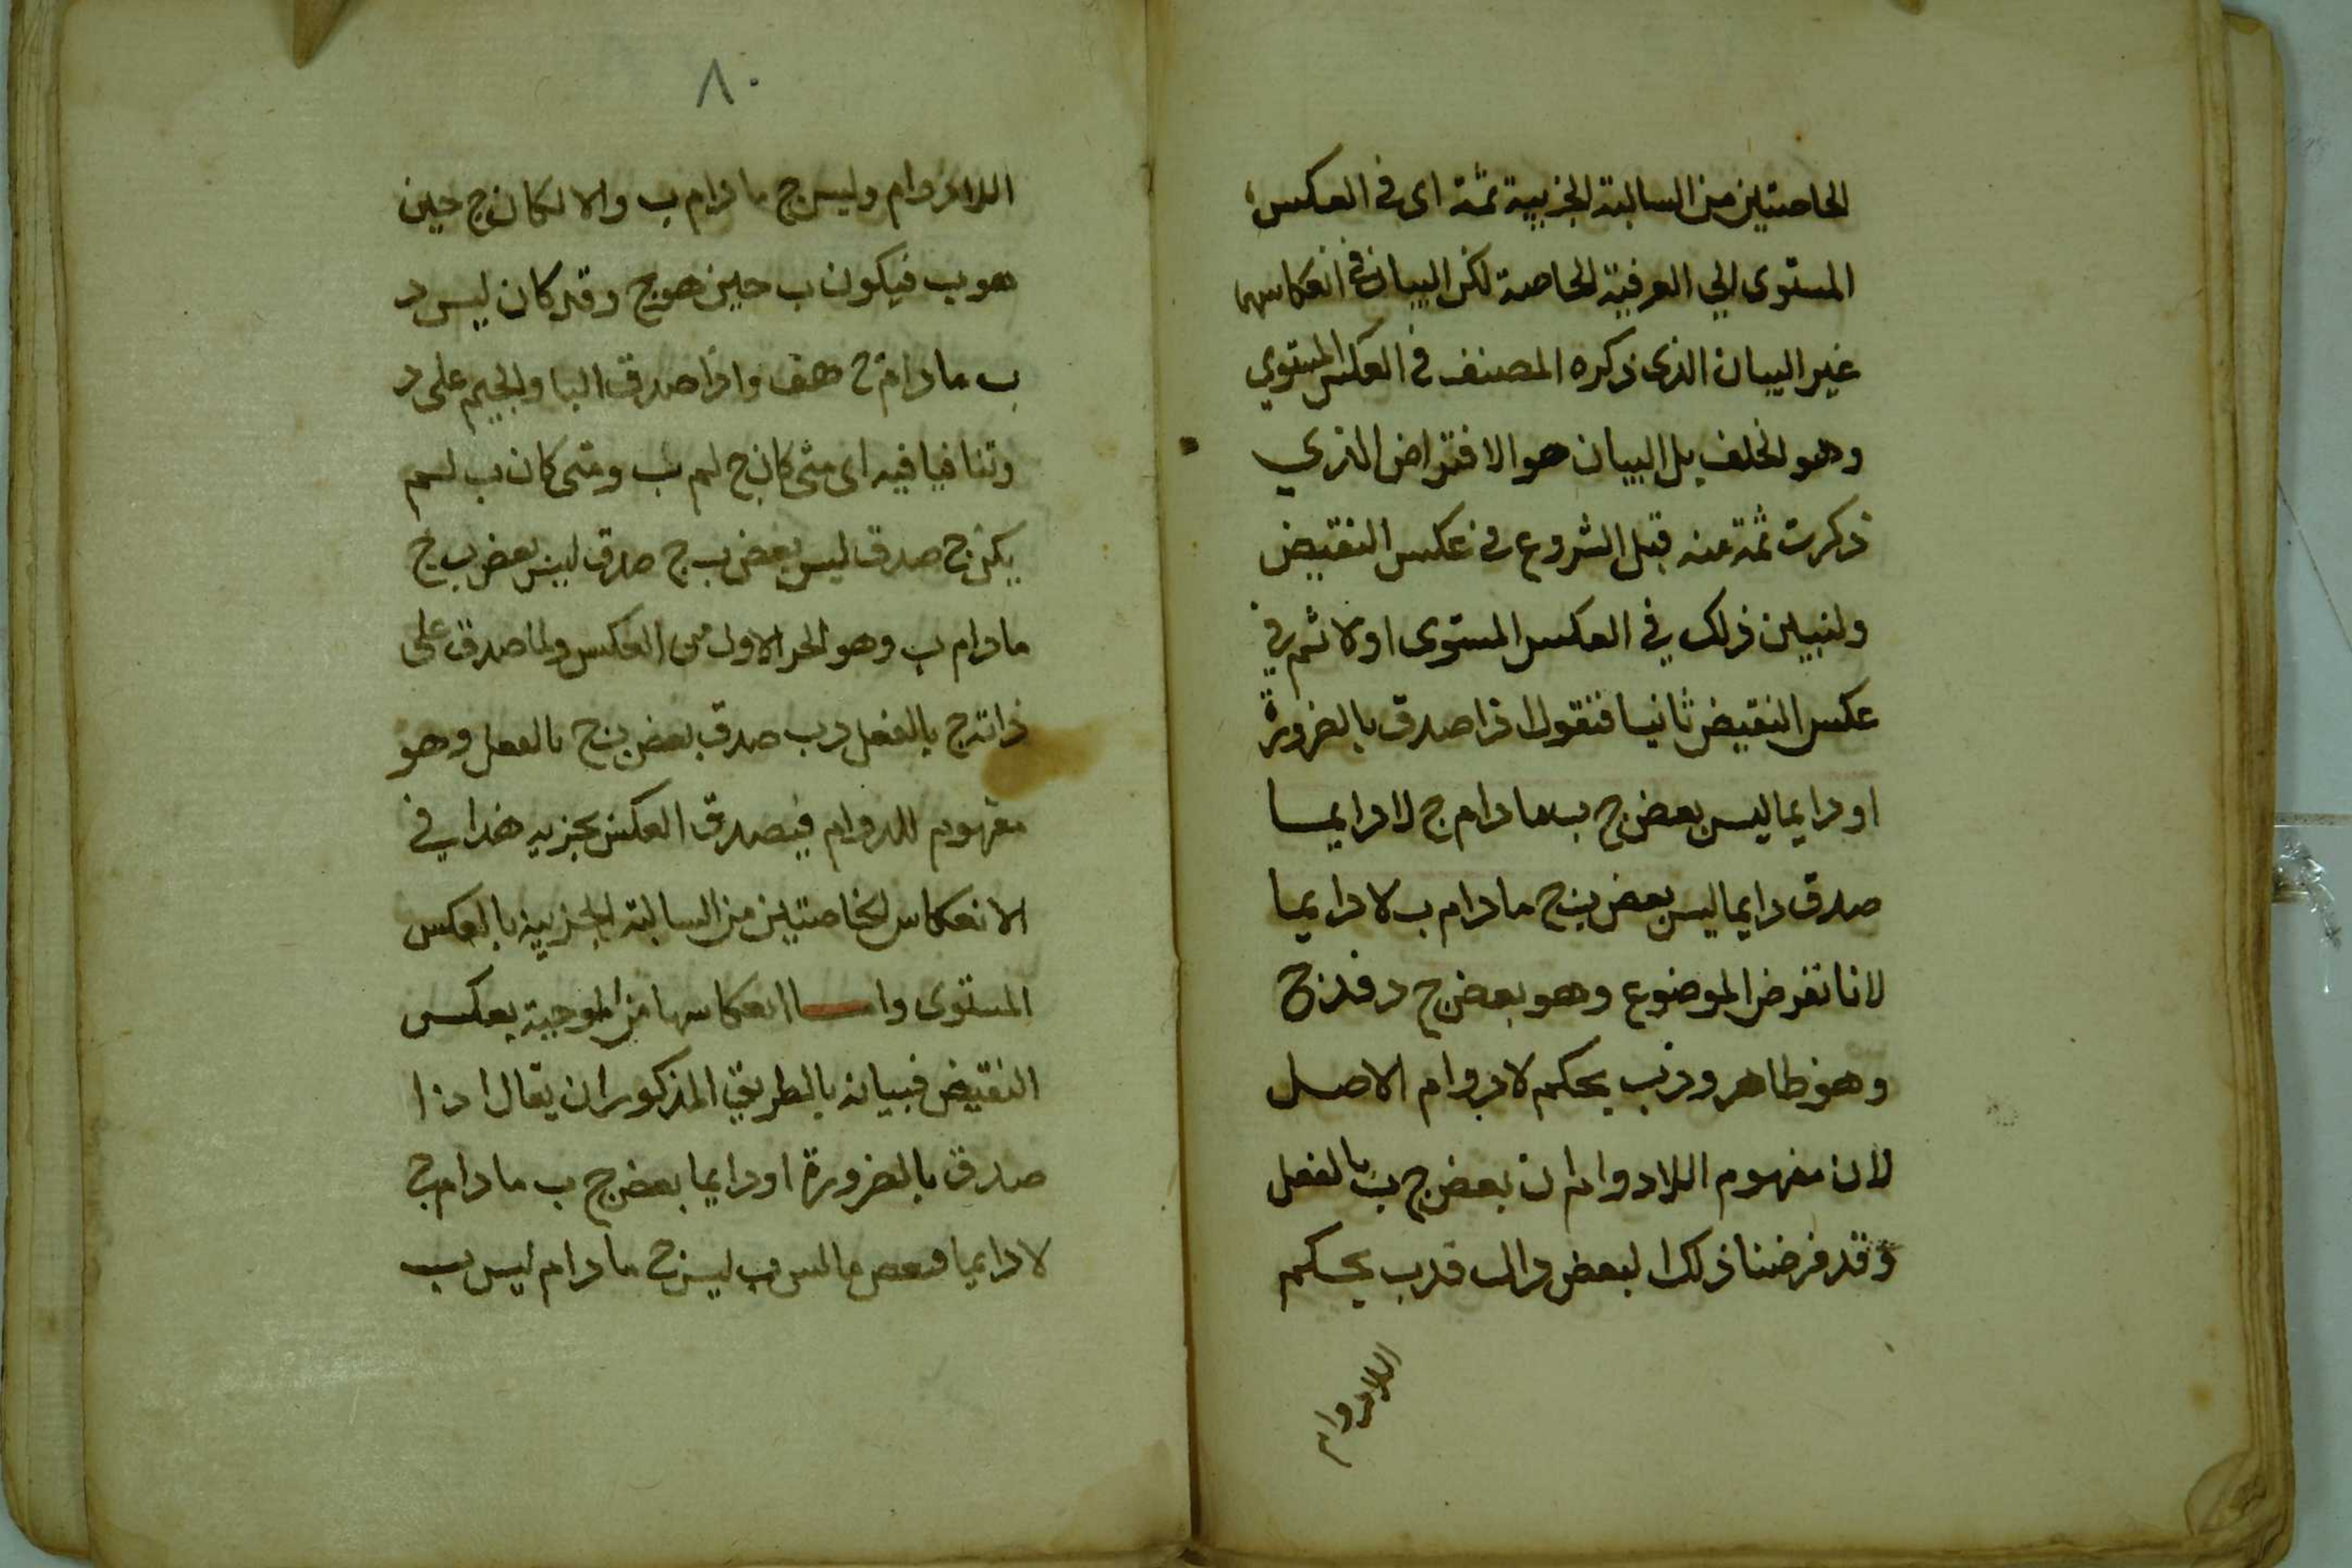 الخاصتين من السالبة الجزيية ثمة اى فى العكس
المستوى الي العرفية الخاصة لكن البيان فى انعكاسهما
غير البيان الذى ذكره المصنف فى العكس المستوي
وهو الخلف بل البيان هو الافتراض الذي
ذكرت ثمة عنه قبل الشروع فى عكس النقيض
ولنبين ذلك في العكس المستوى اولا ثم في
عكس النقيض ثانيا فنقول اذا صدق بالضرورة
او دايما ليس بعض ج ب ما دام ج لا دايما
صدق دايما ليس بعض ب ج ما دام ب لا دايما
لانا نفرض الموضوع وهو بعض ج د فدج
وهو ظاهر ودب بحكم لا دوام الاصل
لان مفهوم اللادوام ان بعض ج ب بالفعل
وقد فرضنا ذلك البعض دال فدب بحكم
اللادوام
٨٠
اللادوام وليس ج ما دام ب والا لكان ج حين
هو ب فيكون ب حين هو ج وقد كان ليس د
ب ما دام ج هف واذا صدق البا والجيم على د
وتنافيا فيه اى متى كان ج لم ب ومتى كان ب لم
يكن ج صدق ليس بعض ب ج صدق ليس بعض ب ج
ما دام ب وهو الجز الاول من العكس ولما صدق على
ذاته ج بالفعل دب صدق بعض ب ج بالفعل وهو
مفهوم اللادوام فيصدق العكس بجزييه هذا في
الانعكاس الخاصتين من السالبة الجزيية بالعكس
المستوى واما انعكاسهما من الموجبة بعكس
النقيض فبيانه بالطريق المذكور ان يقال اذا
صدق بالضرورة او دايما بعض ج ب ما دام ج
لا دايما فبعض ما ليس ب ليس ج ما دام ليس ب